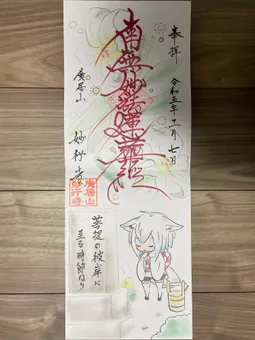 奉拝
令和五年二月七日
南無妙法蓮華経
廣居山
妙行寺
廣居山
妙行寺
菩提の彼岸に
至る時節なり